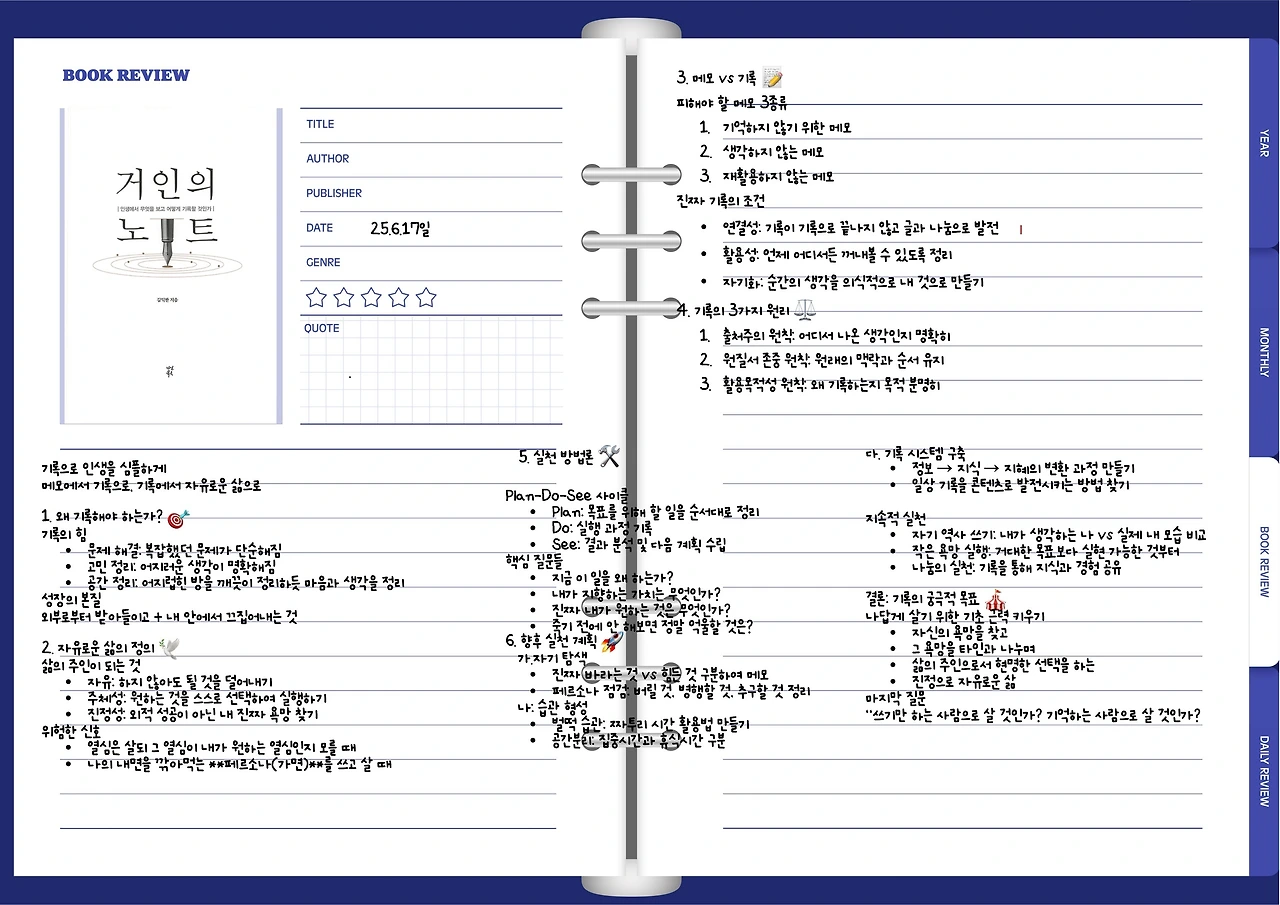 BOOK REVIEW
거인의
| 인생에서 무엇을 보고 어떻게 기록할 것인가 |
노트
김익한 지음
TITLE
AUTHOR
PUBLISHER
DATE 25.6.17일
GENRE
QUOTE
기록으로 인생을 심플하게
메모에서 기록으로, 기록에서 자유로운 삶으로
1. 왜 기록해야 하는가? 🎯
기록의 힘
• 문제 해결: 복잡했던 문제가 단순해짐
• 고민 정리: 어지러운 생각이 명확해짐
• 공간 정리: 어지럽힌 방을 깨끗이 정리하듯 마음과 생각을 정리
성장의 본질
외부로부터 받아들이고 + 내 안에서 끄집어내는 것
2. 자유로운 삶의 정의 🕊️
삶의 주인이 되는 것
• 자유: 하지 않아도 될 것을 덜어내기
• 주체성: 원하는 것을 스스로 선택하여 실행하기
• 진정성: 외적 성공이 아닌 내 진짜 욕망 찾기
위험한 신호
• 열심은 살되 그 열심이 내가 원하는 열심인지 모를 때
• 나의 내면을 깎아먹는 **페르소나(가면)**를 쓰고 살 때
3. 메모 vs 기록 📝
피해야 할 메모 3종류
1. 기억하지 않기 위한 메모
2. 생각하지 않는 메모
3. 재활용하지 않는 메모
진짜 기록의 조건
• 연결성: 기록이 기록으로 끝나지 않고 글과 나눔으로 발전
• 활용성: 언제 어디서든 꺼내볼 수 있도록 정리
• 자기화: 순간의 생각을 의식적으로 내 것으로 만들기
4. 기록의 3가지 원리 ⚖️
1. 출처주의 원칙: 어디서 나온 생각인지 명확히
2. 원질서 존중 원칙: 원래의 맥락과 순서 유지
3. 활용목적성 원칙: 왜 기록하는지 목적 분명히
5. 실천 방법론 🛠️
Plan-Do-See 사이클
• Plan: 목표를 위해 할 일을 순서대로 정리
• Do: 실행 과정 기록
• See: 결과 분석 및 다음 계획 수립
핵심 질문들
• 지금 이 일을 왜 하는가?
• 내가 지향하는 가치는 무엇인가?
• 진짜 내가 원하는 것은 무엇인가?
• 죽기 전에 안 해보면 정말 억울할 것은?
6. 향후 실천 계획 🚀
가.자기 탐색
• 진짜 바라는 것 vs 힘든 것 구분하여 메모
• 페르소나 점검: 버릴 것, 병행할 것, 추구할 것 정리
나: 습관 형성
• 벌떡 습관: 짜투리 시간 활용법 만들기
• 공간분리: 집중시간과 휴식시간 구분
다. 기록 시스템 구축
• 정보 → 지식 → 지혜의 변환 과정 만들기
• 일상 기록을 콘텐츠로 발전시키는 방법 찾기
지속적 실천
• 자기 역사 쓰기: 내가 생각하는 나 vs 실제 내 모습 비교
• 작은 욕망 실행: 거대한 목표보다 실현 가능한 것부터
• 나눔의 실천: 기록을 통해 지식과 경험 공유
결론: 기록의 궁극적 목표 🎪
나답게 살기 위한 기초 근력 키우기
• 자신의 욕망을 찾고
• 그 욕망을 타인과 나누며
• 삶의 주인으로서 현명한 선택을 하는
• 진정으로 자유로운 삶
마지막 질문
"쓰기만 하는 사람으로 살 것인가? 기억하는 사람으로 살 것인가?
YEAR
MONTHLY
BOOK REVIEW
DAILY REVIEW